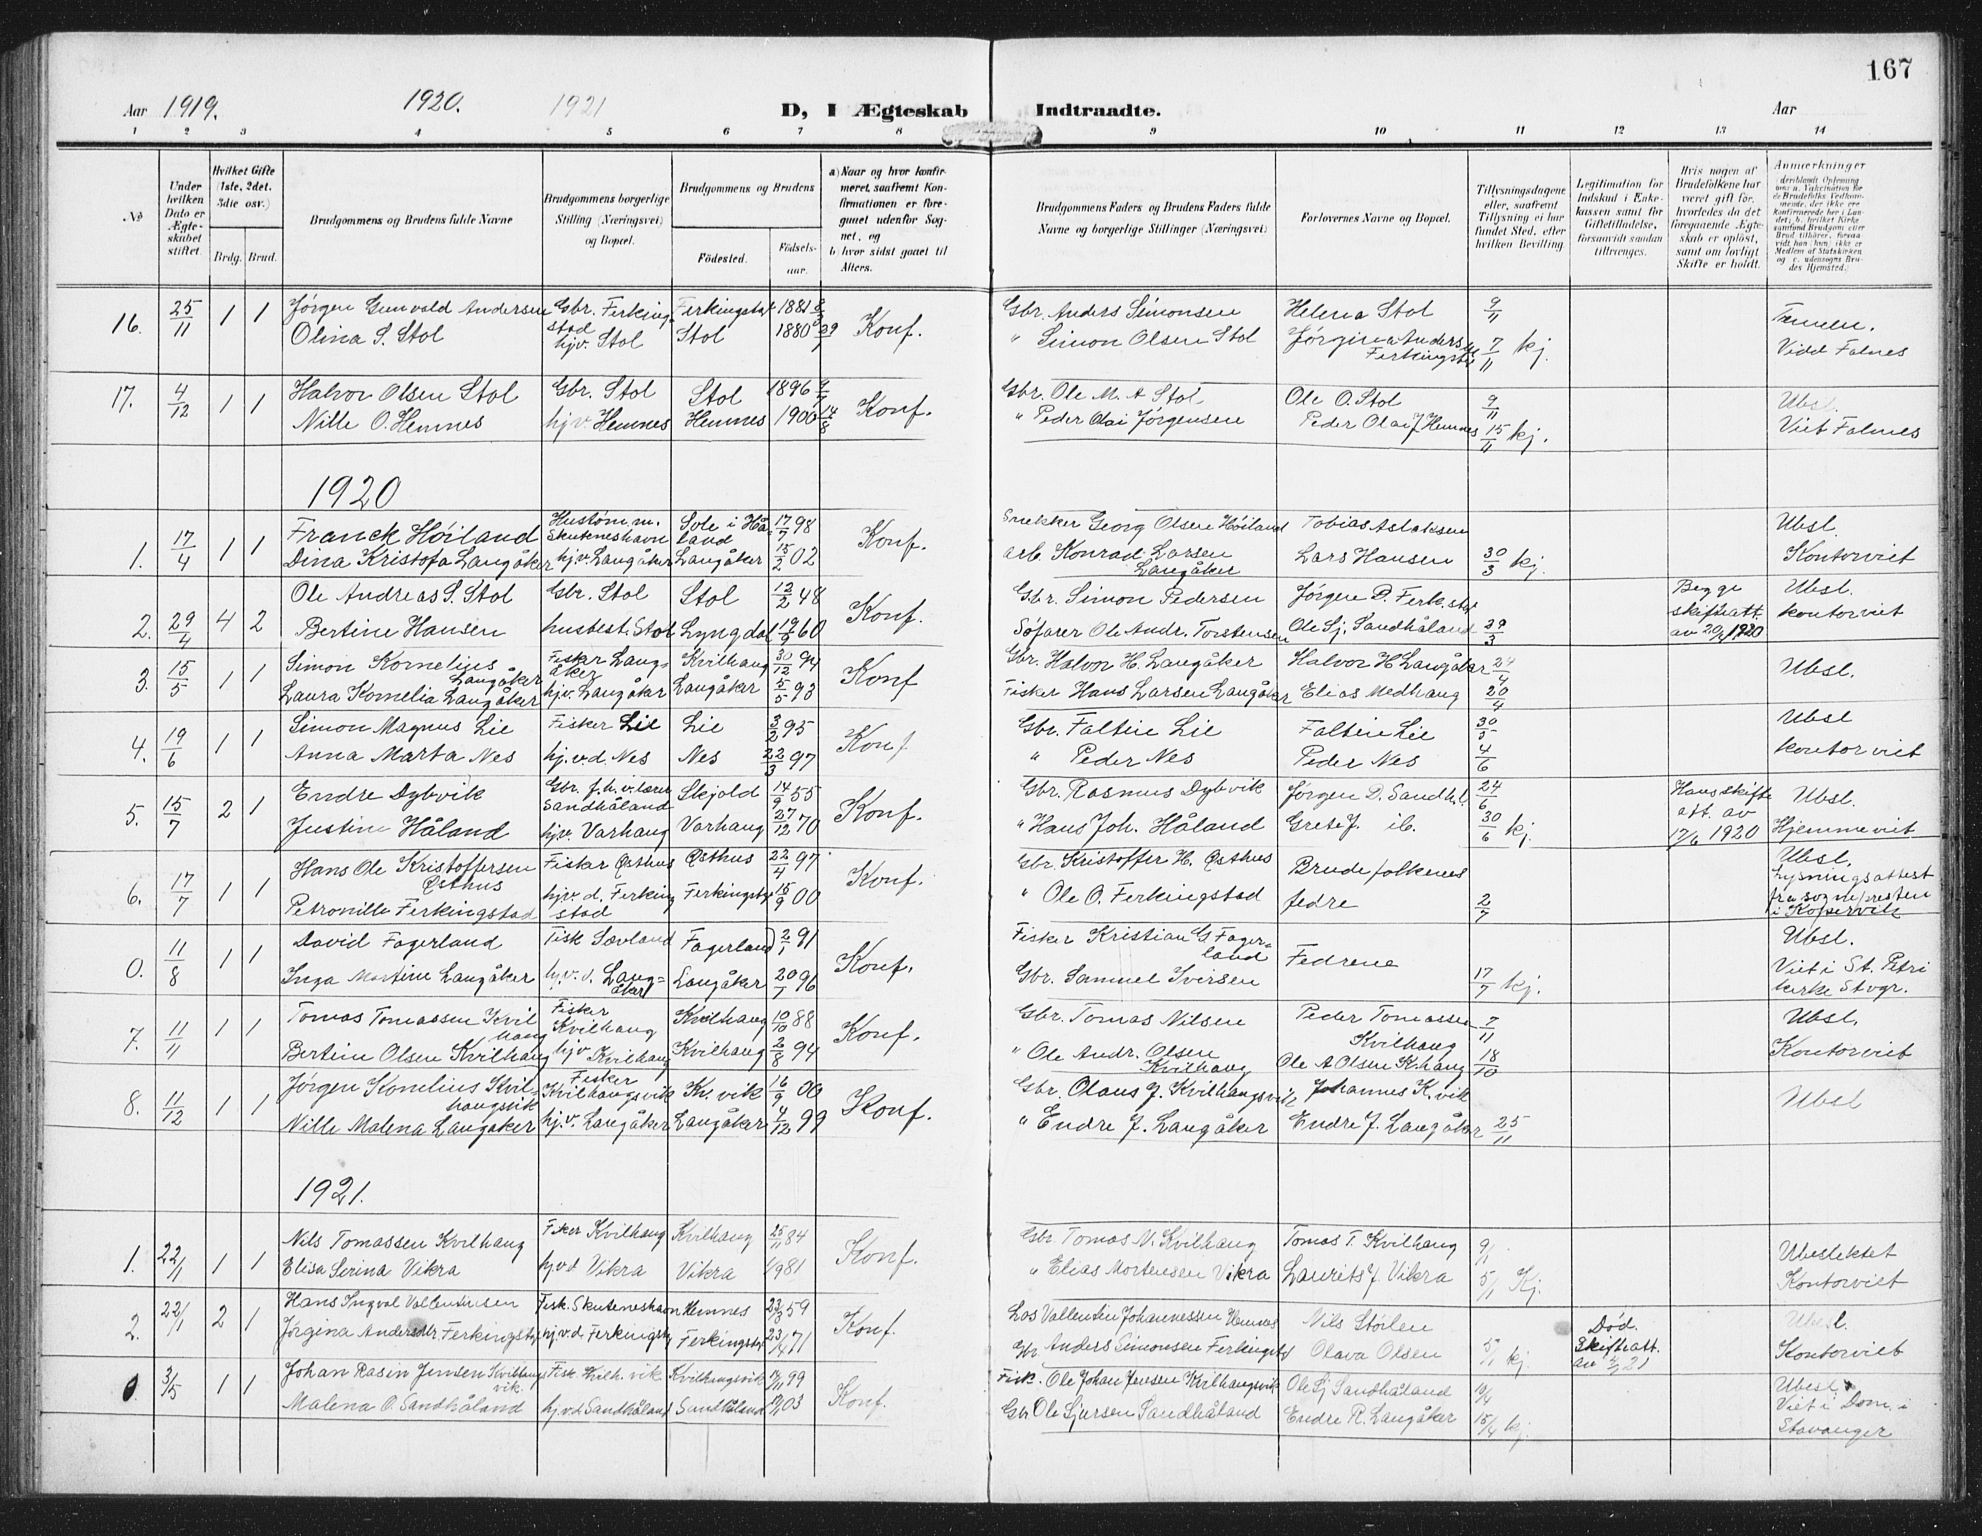 167
Aar 1919. 1920. 1921 D, I Ægteskab Indtraadte. Aar
1 2 3 4 5 6 7 8 9 10 11 12 13 14
№
Under hvilken Dato er Ægteskabet stiftet.
Hvilket Gifte (1ste, 2det. 3die osv.)
Brdg. Brud.
Brudgommens og Brudens fulde Navne
Brudgommens borgerlige Stilling (Næringsvei) og Bopæl.
Brudgommens og Brudens
Fødested. Fødselsaar.
a) Naar og hvor konfirmeret, saafremt Konfirmationen er foregaaet udenfor Sognet, og
b) hvor sidst gaaet til Alters.
Brudgommens Faders og Brudens Faders fulde Navne og borgerlige Stillinger (Næringsvei)
Forlovernes Navne og Bopæl.
Tillysningsdagene eller, saafremt Tillysning ei har fundet Sted, efter hvilken Bevilling.
Legitimation for Indskud i Enkekassen samt for Giftetilladelse, forsaavidt saadan tiltrænges.
Hvis nogen af Brudefolkene har været gift før, hvorledes da det foregaaende Ægteskab er opløst, samt om lovligt Skifte er holdt.
Anmerkninger
16. 25/11 1 1 Jørgen Gunvald Andersen Gbr. Ferkingstad Ferkingstad 1881 8/3 Konf. Gbr. Anders Simonsen Helena Stol 9/11
Olina S. Stol hjv. Stol Stol 1880 29/1 " Simon Olsen Stol Jørgina Anders Ferkingstad 7/11 kj. Vidd Falnes
17. 4/12 1 1 Halvor Olsen Stol Gbr. Stol Stol 1896 9/7 Konf. Gbr. Ole M. A Stol Ole O. Stol 9/11 Ubsl.
Nille O. Hemnes hjv Hemnes Hemnes 1900 14/8 " Peder Olai Jørgensen Peder Olai J Hemnes 15/11 kj. Viet Falnes
1920
1. 17/4 1 1 Franck Høiland Hustøm.m. Skuteneshavn Sole i Håland 17/7 98 Konf. Snekker Georg Olsen Høiland Tobias Aslaksen Ubsl.
Dina Kristofa Langåker hj.v. Langåker Langåker 15/2 02 arb. Konrad Larsen Langåker Lars Hansen 30/3 kj. Kontorviet
2. 29/4 4 2 Ole Andreas S. Stol Gbr. Stol Stol 12/2 48 Konf. Gbr. Simon Pedersen Jørgen D. Ferk.st. Begge skifteatt. av 20/ 1920 Ubsl.
Bertine Hansen husbest. Stol Lyngdal 19/2 60 Søfarer Ole Andr. Torstensen Ole Sj. Sandhåland 29/3 kontorviet
3. 15/5 1 1 Simon Kornelius Langåker Fisker Langåker Kvilhaug 30/12 94 Konf Gbr. Halvor H. Langåker Halvor H Langåker 24/4 Ubsl.
Laura Kornelia Langåker hj.v. Langåker Langåker 5/5 93 Fisker Hans Larsen Langåker Elias Medhaug 20/4
4. 19/6 1 1 Simon Magnus Lie Fisker Lie Lie 3/2 95 Konf Gbr. Faltin Lie Faltin Lie 30/5 Ubsl
Anna Marta Nes hj.v.d Nes Nes 22/3 97 " Peder Nes Peder Nes 4/6 kontorviet
5. 15/7 2 1 Endre Dybvik Gbr. f.h.v. lærer Sandhåland Skjold 14/9 55 Konf. Gbr. Rasmus Dybvik Jørgen D. Sandh.l. 24/6 Hans skifte att. av 17/6 1920 Ubsl.
Justine Håland hjv. Varhaug Varhaug 27/12 70 " Hans Joh. Håland Grete J. ib. 30/6 kj. Hjemmeviet
6. 17/7 1 1 Hans Ole Kristoffersen Østhus Fisker Østhus Østhus 22/4 97 Konf. Gbr. Kristoffer H. Østhus Brudefolkenes Ubsl. Lysningsattest
Petronille Ferkingstad hjv. d. Ferkingstad Ferkingstad 15/9 00 " Ole O. Ferkingstad fedre 2/7 fra sognepresten i Kopervik
0. 11/8 1 1 David Fagerland Fisk Sævland Fagerland 2/1 91 Konf. Fisker Kristian G Fagerland Fedrene Ubsl.
Inga Martine Langåker hj.v.d. Langåker Langåker 20/7 96 Gbr. Samuel Iversen 17/7 kj. Viet i St. Petri kirke Stvgr.
7. 11/11 1 1 Tomas Tomassen Kvilhaug Fisker Kvilhaug Kvilhaug 10/10 88 Konf. Gbr. Tomas Nilsen Peder Tomassen Kvilhaug 7/11 Ubsl.
Bertine Olsen Kvilhaug hjv Kvilhaug Kvilhaug 2/8 94 " Ole Andr. Olsen Kvilhaug Ole A Olsen K.haug 18/10 Kontorviet
8. 11/12 1 1 Jørgen Konelius Kvilhaugsvik Fisker Kvilhaugsvik Kv. vik 16/9 00 Konf. Gbr. Olaus J. Kvilhaugsvik Johannes K.vik Ubsl
Nille Malena Langåker hj.v. Langåker Langåker 4/12 99 " Endre J. Langåker Endre J. Langåker 25/11
1921.
1. 22/1 1 1 Nils Tomassen Kvilhaug Fisker Kvilhaug Kvilhaug 25/11 84 Konf. Gbr Tomas N. Kvilhaug Tomas T. Kvilhaug 9/1 Ubeslektet
Elisa Serina Vikra hj.v.d Vikra Vikra 81 " Elias Mortensen Vikra Laurits J. Vikra 5/1 Kj. Kontorviet
2. 22/1 2 1 Hans Ingval Vallentinsen Fisk. Skuteneshavn Hemnes 23/3 59 Konf. Los Vallentin Johannessen Hemnes Nils Stølen Død. Ubesl.
Jørgina Andersdtr Ferkingstad hj.v.d. Ferkingstad Ferkingstad 23/4 71 Gbr. Anders Simonsen Ferkingstad Olava Olsen 5/1 kj Skifteatt. av 21 Kontorviet
0 3/5 1 1 Johan Rasin Jensen Kvilhaugsvik Fisk. Kvilh. vik Kvilhaugsvik 99 Konf. Fisk. Ole Johan Jensen Kvilhaugsvik Ole Sj Sandhåland 10/4 Ubesl.
Malena O. Sandhåland hj.v.d Sandhåland Sandhåland 03 Gbr Ole Sjursen Sandhåland Endre R. Langåker 15/4 kj. Viet i Dom. i Stavanger